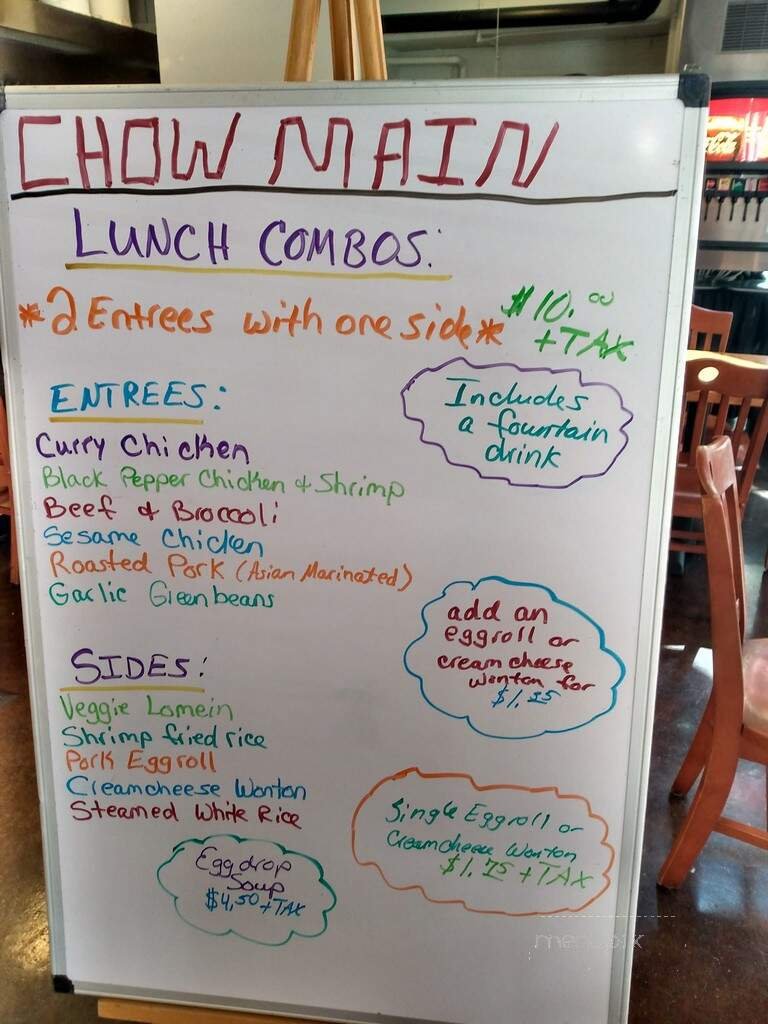 CHOW MAIN
LUNCH COMBOS:
*2 Entrees with one side*
$10.00
+TAX
Includes
a fountain
drink
ENTREES:
Curry Chicken
Black Pepper Chicken & Shrimp
Beef & Broccoli
Sesame Chicken
Roasted Pork (Asian Marinated)
Garlic Greenbeans
add an
eggroll or
cream cheese
wonton for
SIDES:
Veggie Lomein
Shrimp fried rice
Pork Eggroll
Creamcheese Wonton
Steamed White Rice
Single Eggroll or
Creamcheese Wonton
$1.75 +TAX
Egg drop
Soup
$4.50 +TAX
menupix
Coca-Cola